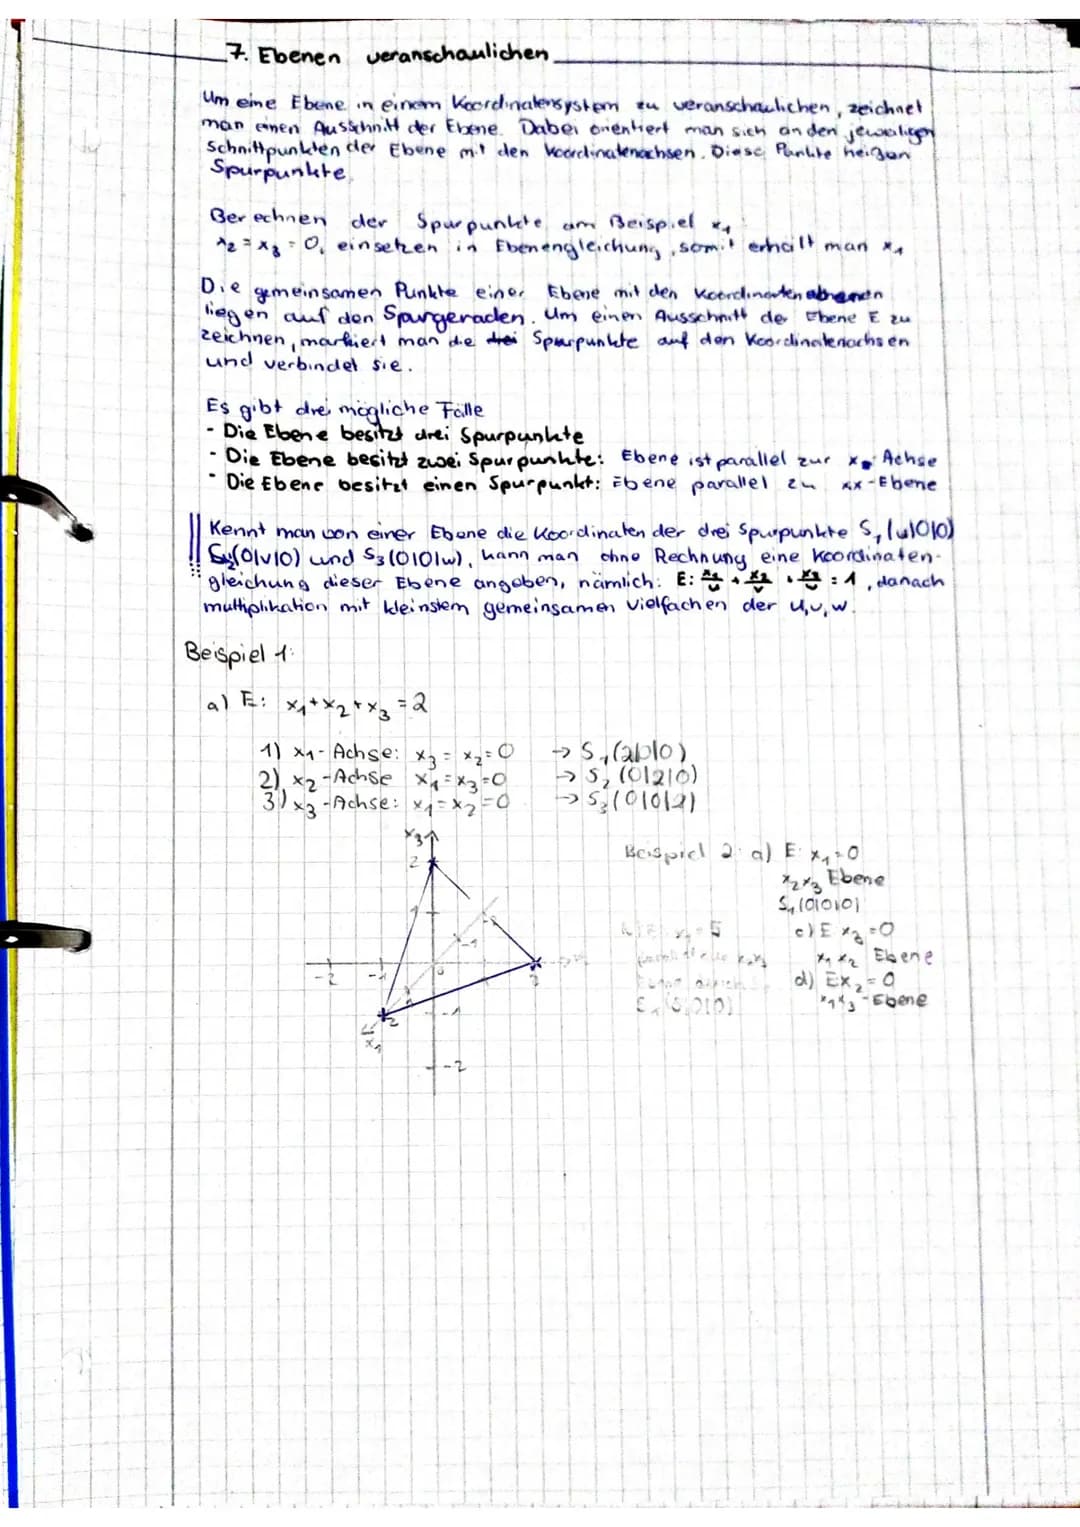 7. Ebenen veranschaulichen
Um eine Ebene in einem Koordinatensystem zu veranschaulichen, zeichnet
man einen Ausschnitt der Ebene. Dabei orientiert man sich an den jeweiligen
Schnittpunkten der Ebene mit den Koordinatenachsen. Diese Punkte heißen
Spurpunkte.
Berechnen der Spurpunkte am Beispiel x₁:
x₂ = x₃ = 0, einsetzen in Ebenengleichung, somit erhält man x₁
Die gemeinsamen Punkte einer Ebene mit den Koordinatenebenen
liegen auf den Spurgeraden. Um einen Ausschnitt der Ebene E zu
zeichnen, markiert man die drei Spurpunkte auf den Koordinatenachsen
und verbindet sie.
Es gibt drei mögliche Fälle
- Die Ebene besitzt drei Spurpunkte
- Die Ebene besitzt zwei Spurpunkte: Ebene ist parallel zur x Achse
- Die Ebene besitzt einen Spurpunkt: Ebene parallel zu xx-Ebene
Kennt man von einer Ebene die Koordinaten der drei Spurpunkte S₁ (u|0|0)
S₂(0|v|0) und S₃(0|0|w), kann man ohne Rechnung eine Koordinaten-
gleichung dieser Ebene angeben, nämlich: E: x₁/u + x₂/v + x₃/w = 1, danach
multiplikation mit kleinstem gemeinsamen Vielfachen der u,v,w.
Beispiel 1:
a) E: x₁+x₂+x₃ = 2
1) x₁-Achse: x₃ = x₂ = 0 → S₁(2|0|0)
2) x₂-Achse x₁ = x₃ = 0 → S₂ (0|2|0)
3) x₃-Achse: x₁ = x₂ = 0 → S₃(0|0|2)
x₃
2
1
-1
-2 -1 0 2
1
2 -1
x₁
-2
Beispiel 2: a) E: x₁=0
x₂x₃ Ebene
S₁(0|0|0)
= 5
c) E x₃ = 0
x₁x₂ Ebene
d) E x₂ = 0
x₁x₃-Ebene